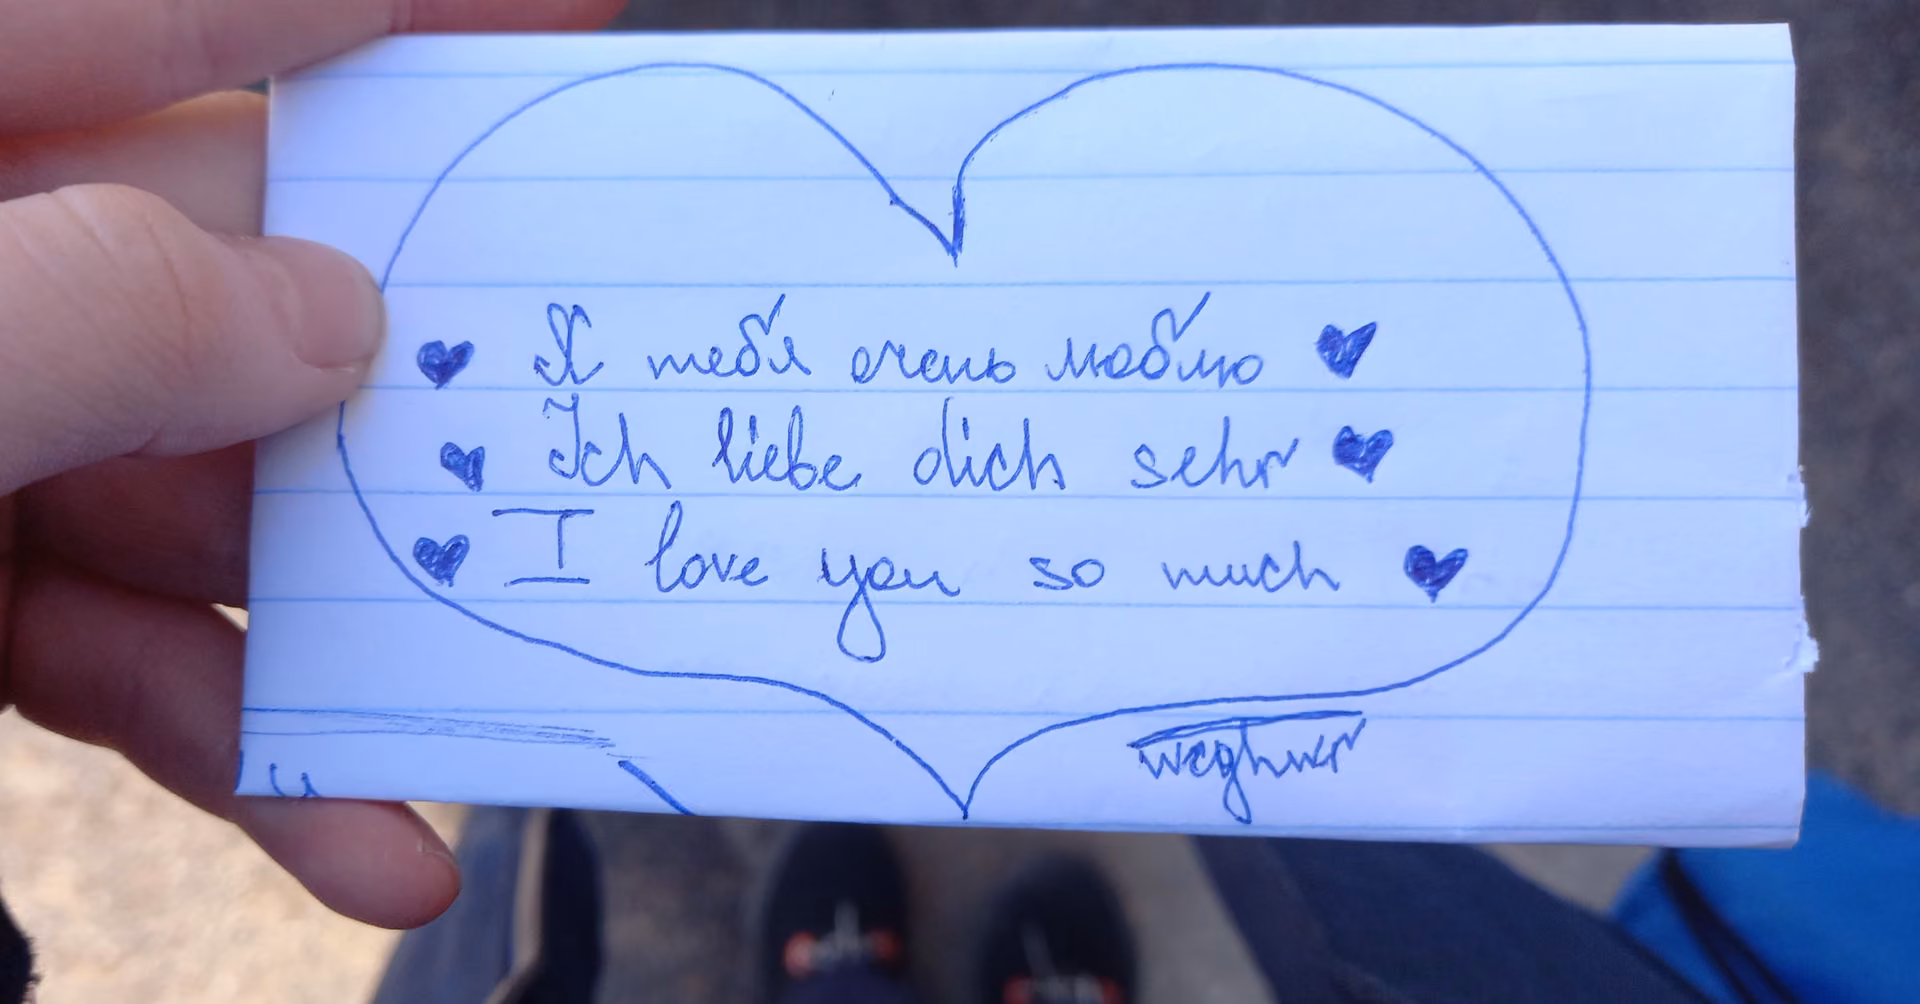 Я тебя очень люблю
Ich liebe dich sehr
I love you so much